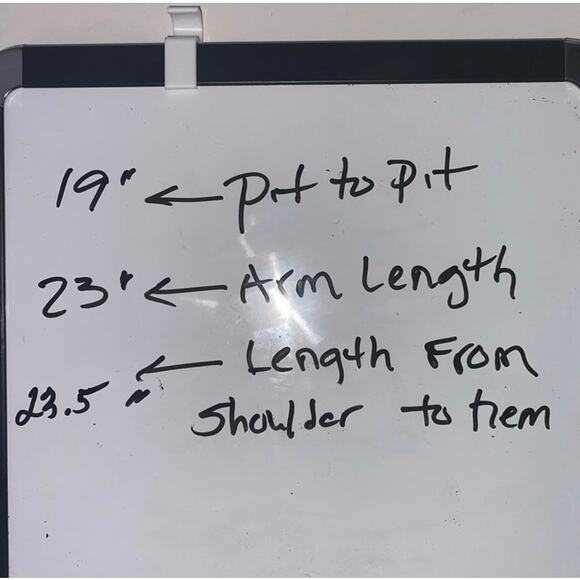 19" ← Pit to Pit
23" ← Arm Length
← Length From
23.5 " Shoulder to Hem